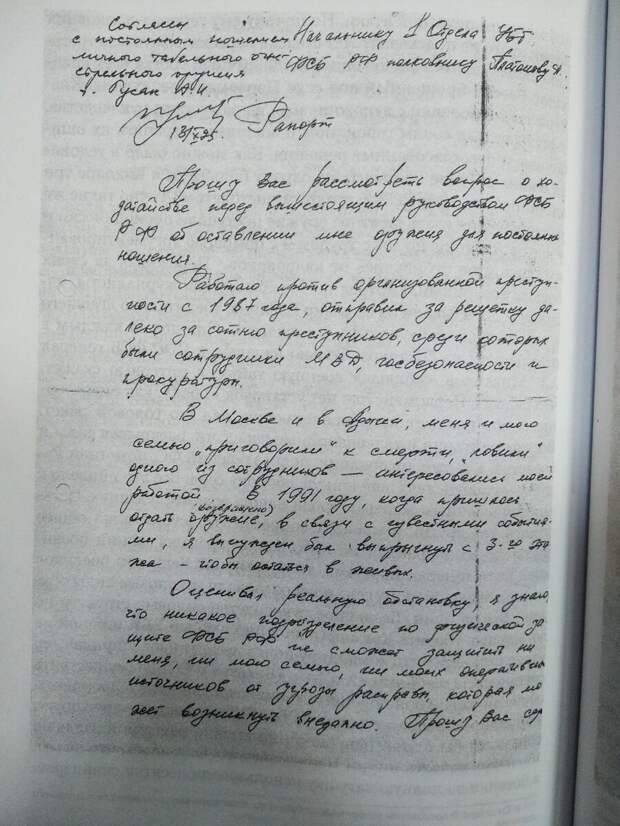 Согласен
с постоянным ношением
личного табельного огне-
стрельного оружия
г. Гусак А.И.
Начальнику 1 Отдела УБТ
ФСБ РФ полковнику Платонову
13/X-95.
Рапорт
Прошу Вас рассмотреть вопрос о хо-
датайстве перед вышестоящим руководством ФСБ
РФ об оставлении мне оружия для постоянного
ношения.
Работаю против организованной преступ-
ности с 1987 года, отправил за решетку да-
леко за сотню преступников, среди которых
были сотрудники МВД, госбезопасности и
прокуратуры.
В Москве и в, меня и мою
семью "приговорили" к смерти, "ловили"
одного из сотрудников — интересовались моей
работой. В 1991 году, когда пришлось
(возвращено)
отдать оружие, в связи с известными события-
ми, я вынужден был выпрыгнуть с 3-го эта-
жа - чтобы остаться в живых.
Оценивая реальную обстановку, я знаю,
что никакое подразделение по физической за-
щите ФСБ РФ не сможет защитить ни
меня, ни мою семью, ни моих оперативных
источников от угрозы расправы, которая мо-
жет возникнуть внезапно. Прошу Вас